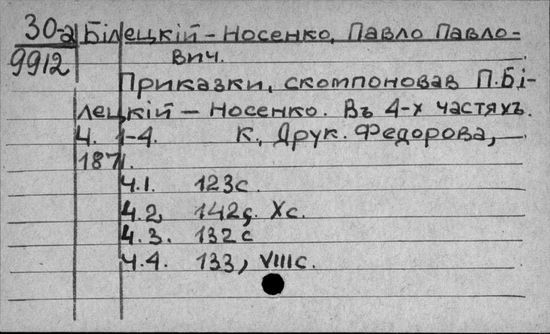 30-а Білецкій-Носенко, Павло Павло-
9912 вич.
Приказки, скомпоновав П.Бі-
лецкій - Носенко. Въ 4-х частяхъ.
Ч. 1-4. К., Друк. Федорова,
1871.
Ч.1. 123с.
Ч.2, 142с. Xс.
Ч.3. 132с
Ч.4. 133, VIIIс.